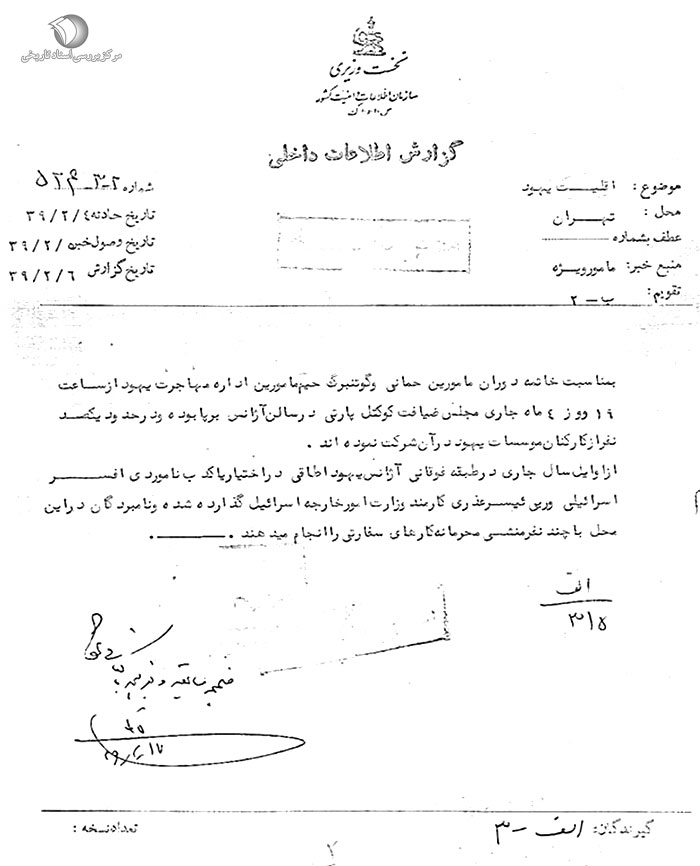 مرکز بررسی اسناد تاریخی
نخست وزیری
سازمان اطلاعات و امنیت کشور
س.ا.و.ا.ک
گزارش اطلاعات داخلی
موضوع: اقلیت یهود
محل: تهران
عطف بشماره
منبع خبر: مامور ویژه
تقویم: ب-۲
شماره
تاریخ حادثه ۳۹/۲/٤
تاریخ وصول خبر ۳۹/۲/۵
تاریخ گزارش ۳۹/۲/٦
بمناسبت خاتمه دوران مامورین حمانی وگوتنبرگ حیم مامورین اداره مهاجرت یهود از ساعت
۱۹ روز ٤ ماه جاری مجلس ضیافت کوکتل پارتی در سالن آژانس برپا بوده و در حدود یکصد
نفر از کارکنان موسسات یهود در آن شرکت نموده اند .
از اوایل سال جاری در طبقه فوقانی آژانس یهود اطاقی در اختیار یاکدب نامرودی افسر
اسرائیلی و ربی ئیسر عذری کارمند وزارت امور خارجه اسرائیل گذارده شده و نامبردگان در این
محل با چند نفر منشی محرمانه کارهای سفارتی را انجام میدهند .
الف
۳۱۵
ضمیمه سابقه و
گیرندگان: الف-۳
تعداد نسخه :